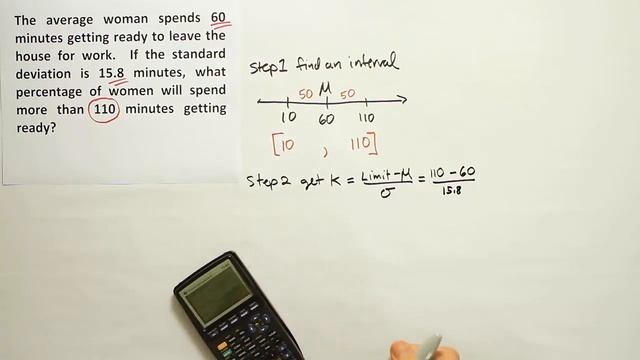 The average woman spends 60
minutes getting ready to leave the
house for work. If the standard
deviation is 15.8 minutes, what
percentage of women will spend
more than 110 minutes getting
ready?
Step1 find an interval
50 M 50
10 60 110
[10 , 110]
Step2 get K = Limit-M / σ = 110-60 / 15.8